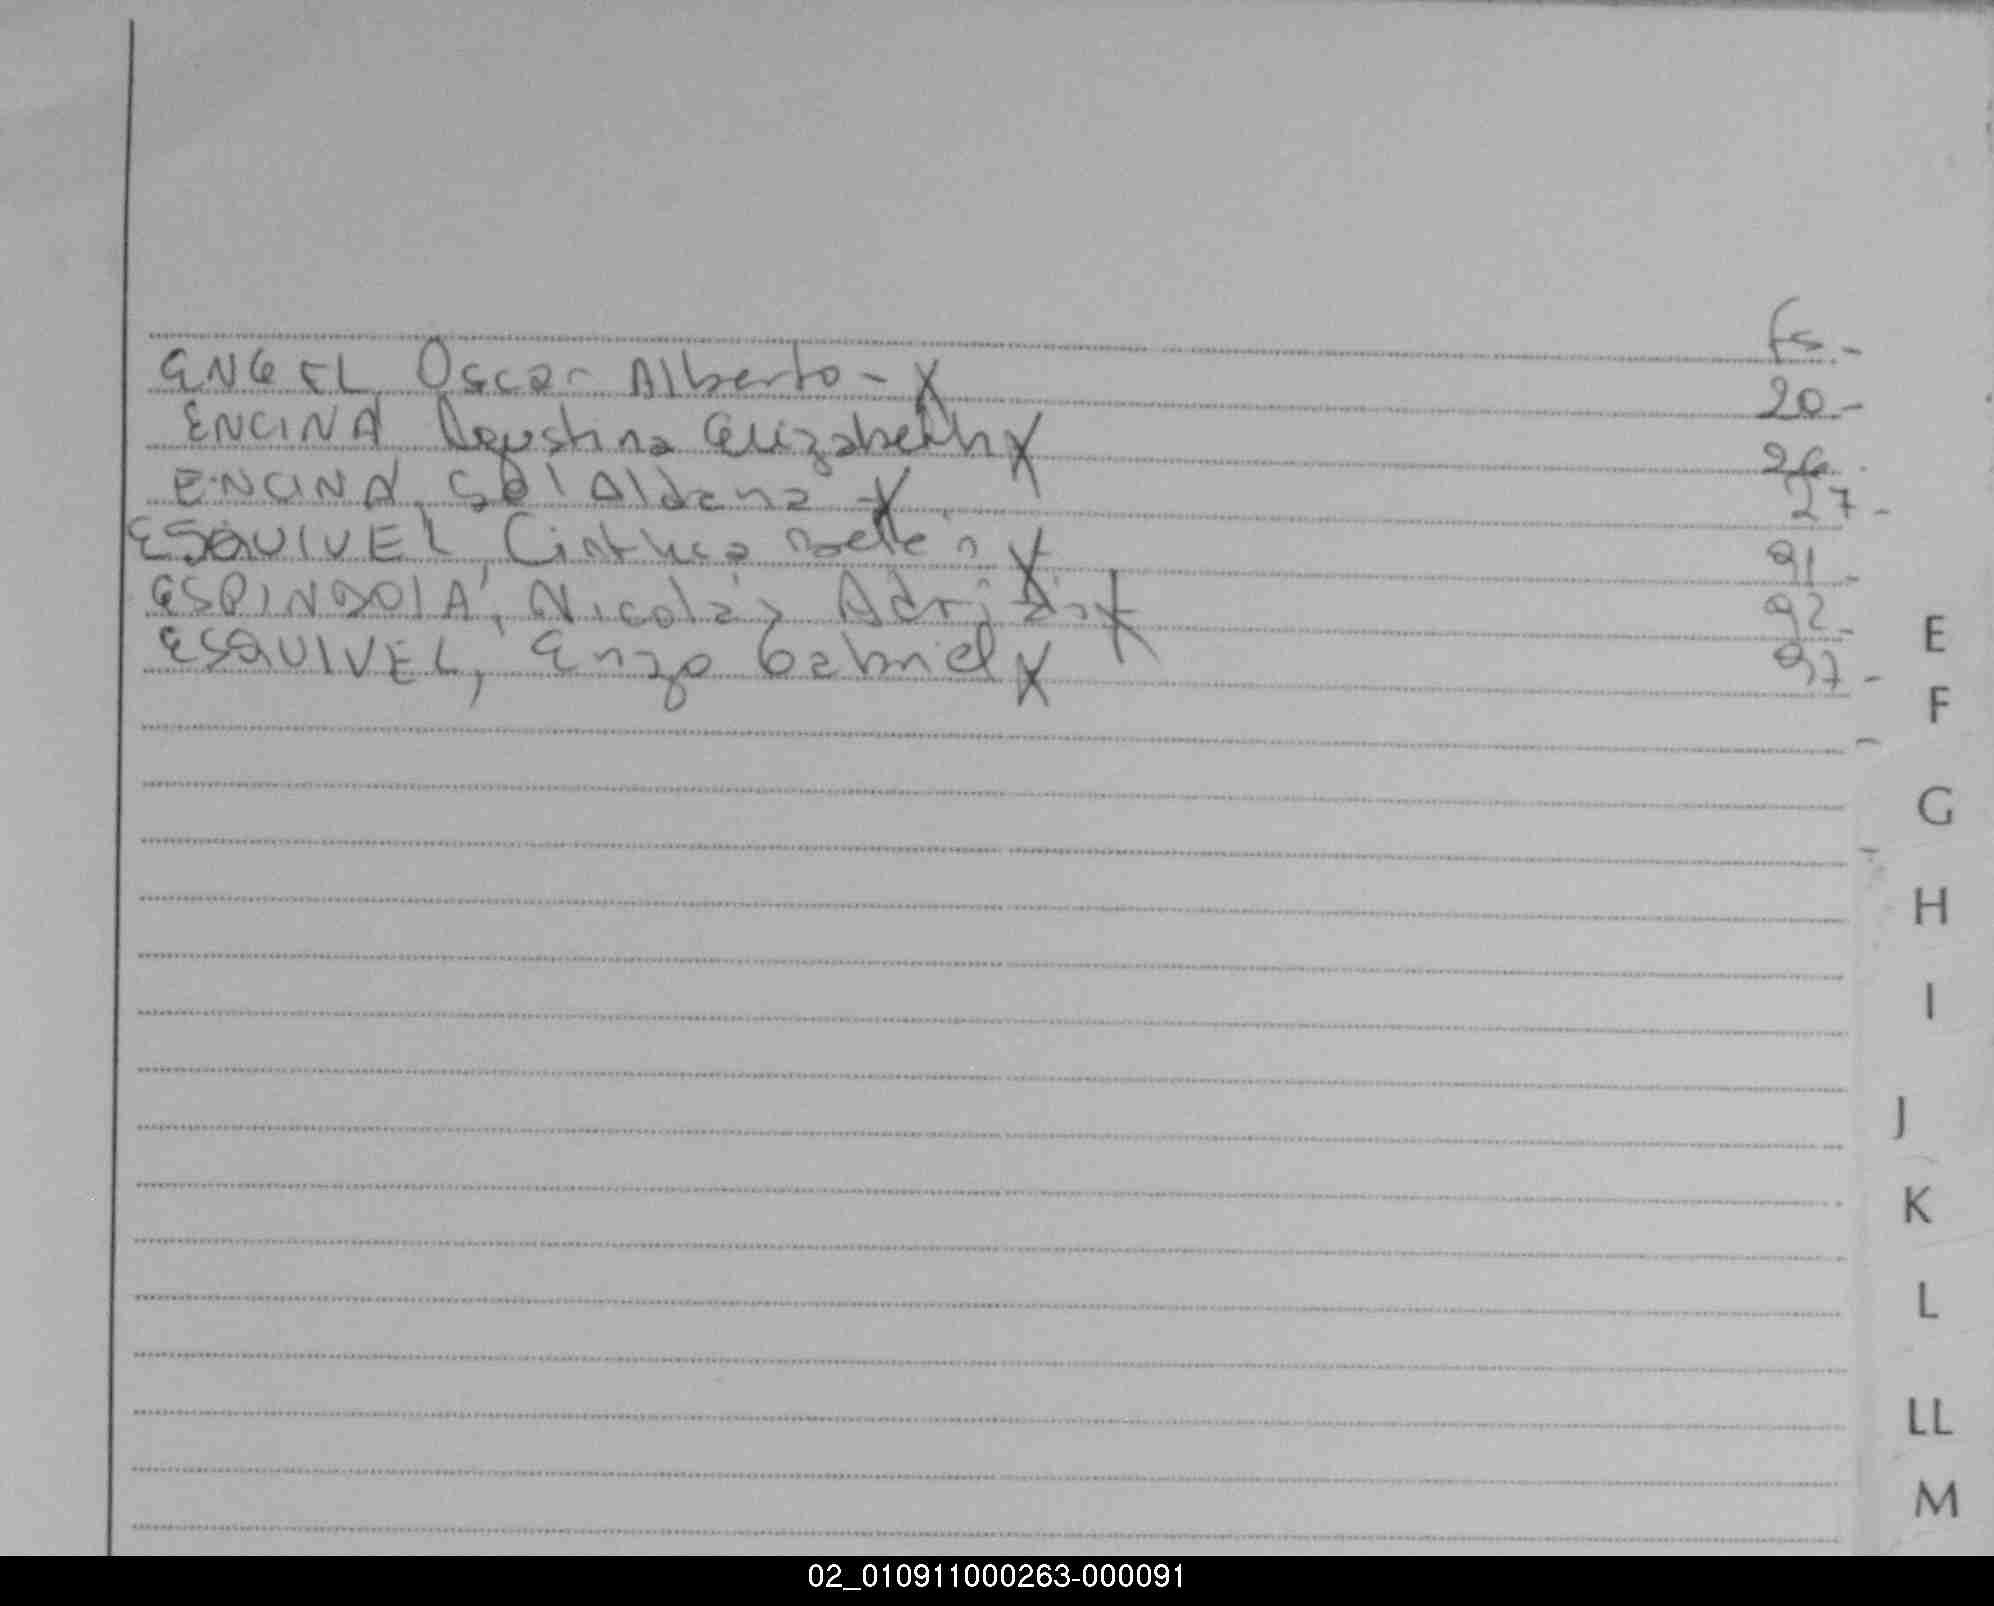 Fs.-
ENGEL Oscar Alberto - X 20.-
ENCINA Agustina Elizabeth X 26.
ENCINA, Sol Aldana X 27-
ESQUIVEL, Cinthia Belén X 91.-
ESPINDOLA, Nicolás Adrián X 92-
ESQUIVEL, Enzo Gabriel X 97-
E
F
G
H
I
J
K
L
LL
M
02_010911000263-000091